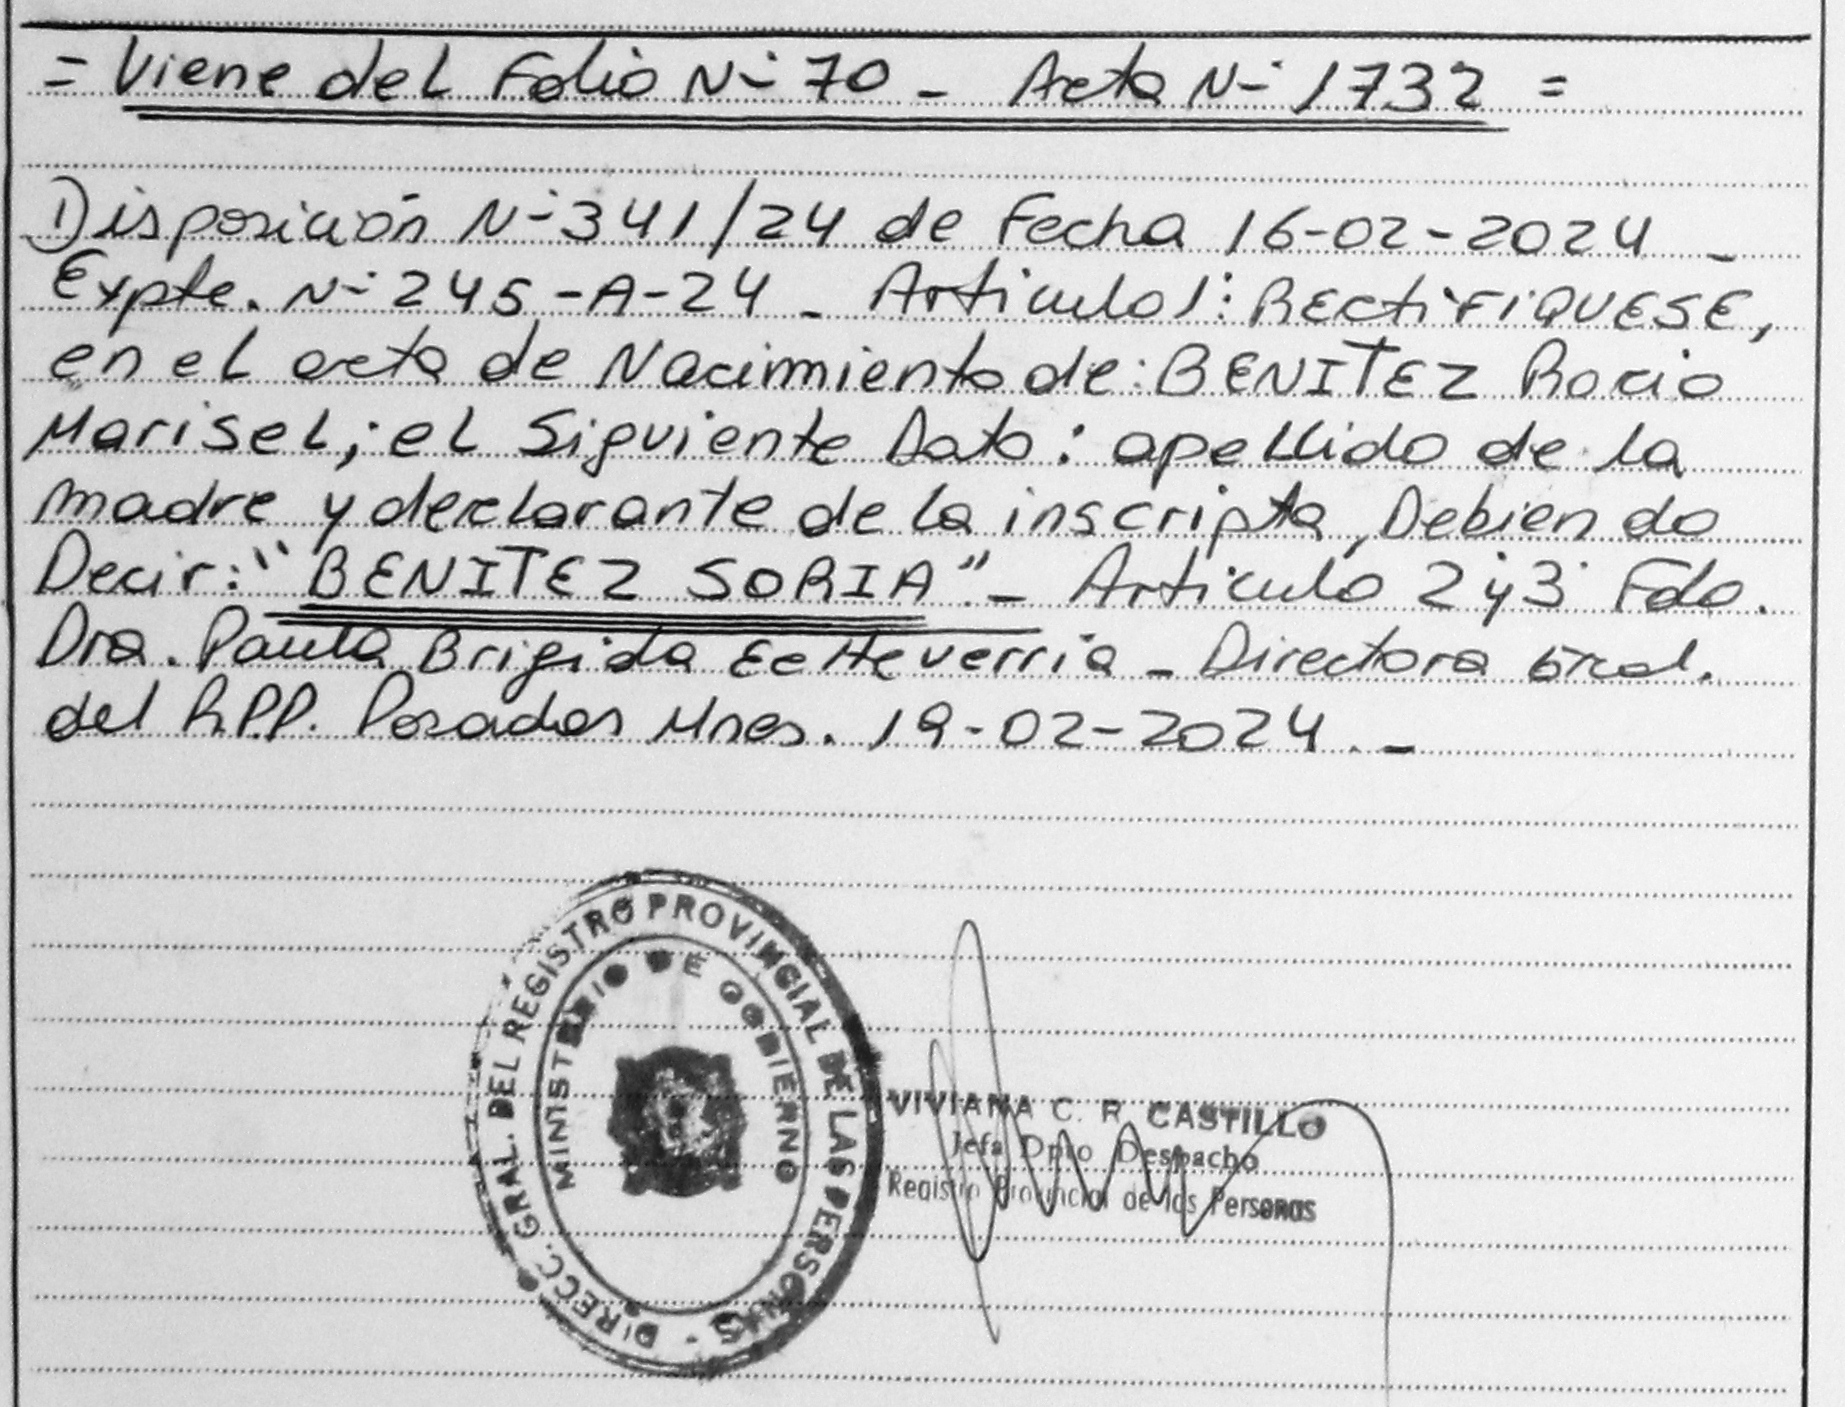 = Viene del Folio N- 70 - Acta N- 1732 =
Disposición N-341/24 de Fecha 16-02-2024 -
Expte. N-245-A-24 - Articulo 1: RECtiFIQUESE,
en el acta de Nacimiento de: BENITEZ Rocio
Marisel; el Siguiente Dato: apellido de la
madre y declarante de la inscripta, Debiendo
Decir: "BENITEZ SORIA".- Articulo 2 y 3 Fdo.
Dra. Paula Brigida Echeverria - Directora Gral.
del R.P.P. Posadas Mnes. 19-02-2024.-
DIRECC. GRAL. DEL REGISTRO PROVINCIAL DE LAS PERSONAS -
MINISTERIO DE GOBIERNO
VIVIANA C. R. CASTILLO
Jefa Dpto Despacho
Registro Provincial de las Personas